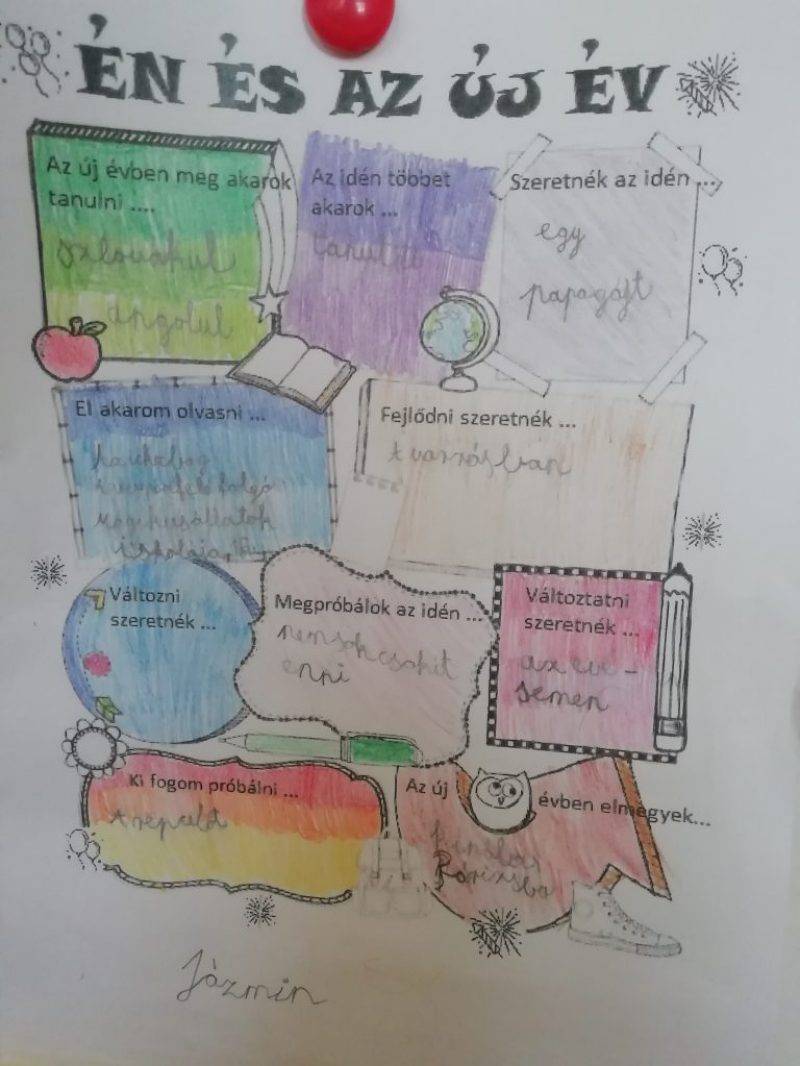 ÉN ÉS AZ ÚJ ÉV
Az új évben meg akarok
tanulni ....
szlovákul
angolul
Az idén többet
akarok ...
tanulni
Szeretnék az idén ...
egy
papagájt
El akarom olvasni ...
Mágikusállatok
iskolája,
Fejlődni szeretnék ...
A varrásban
Változni
szeretnék ...
Megpróbálok az idén ...
nem sok csokit
enni
Változtatni
szeretnék ...
az eve-
semen
Ki fogom próbálni ...
A repülőt
Az új
évben elmegyek...
Párizsba
Jázmin